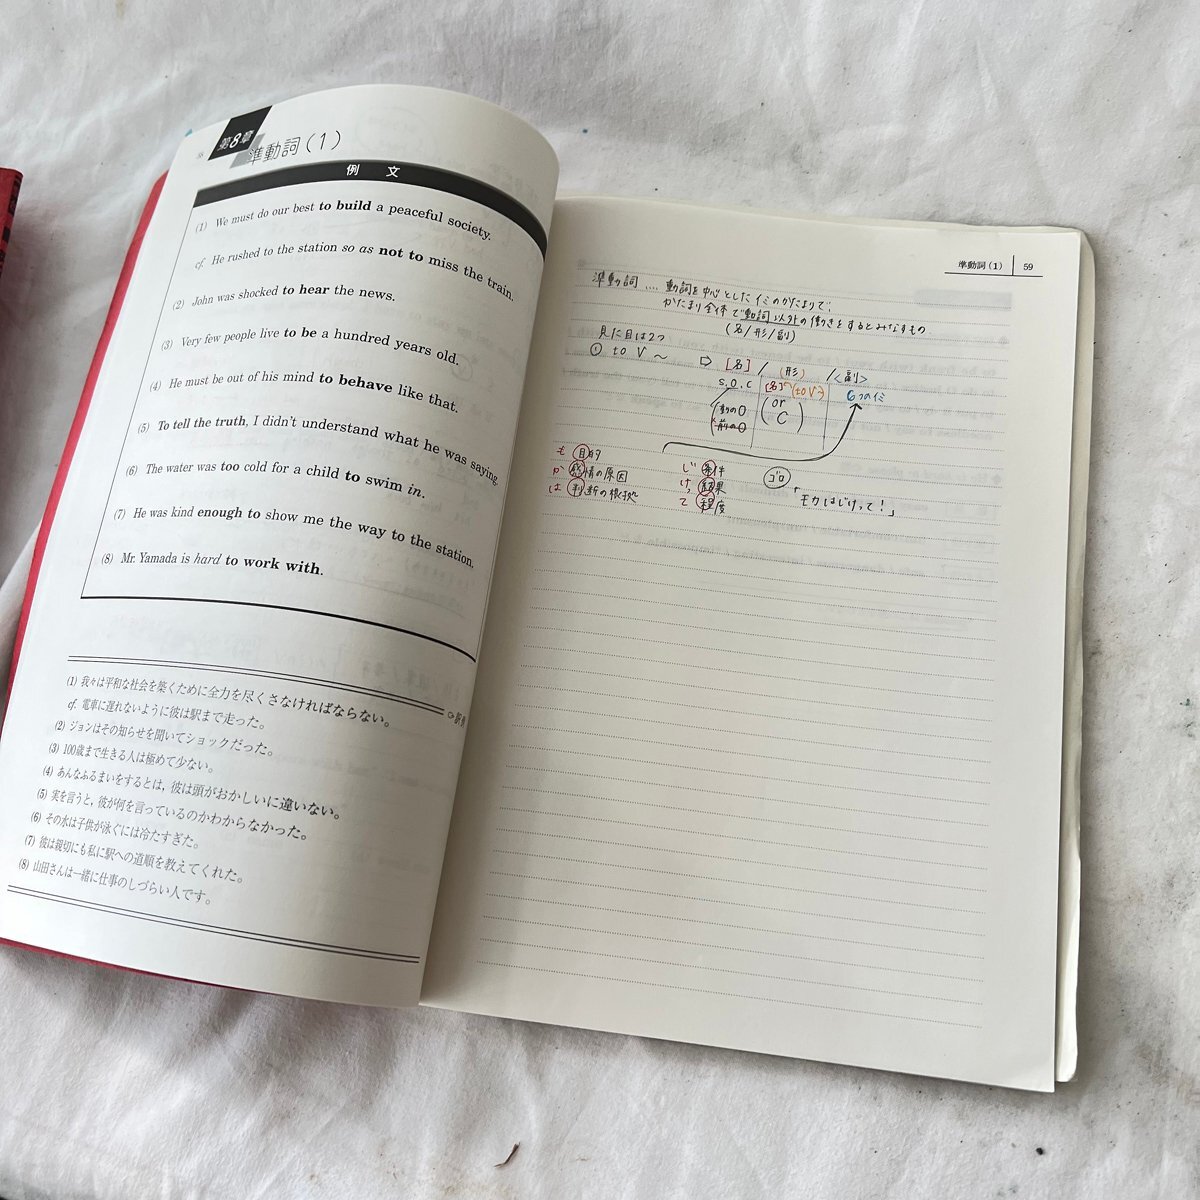 58
第8章 準動詞（1）
例 文
(1) We must do our best to build a peaceful society.
cf. He rushed to the station so as not to miss the train.
(2) John was shocked to hear the news.
(3) Very few people live to be a hundred years old.
(4) He must be out of his mind to behave like that.
(5) To tell the truth, I didn't understand what he was saying.
(6) The water was too cold for a child to swim in.
(7) He was kind enough to show me the way to the station.
(8) Mr. Yamada is hard to work with.
(1) 我々は平和な社会を築くために全力を尽くさなければならない。
cf. 電車に遅れないように彼は駅まで走った。
(2) ジョンはその知らせを聞いてショックだった。
(3) 100歳まで生きる人は極めて少ない。
(4) あんなふるまいをするとは，彼は頭がおかしいに違いない。
(5) 実を言うと，彼が何を言っているのかわからなかった。
(6) その水は子供が泳ぐには冷たすぎた。
(7) 彼は親切にも私に駅への道順を教えてくれた。
(8) 山田さんは一緒に仕事のしづらい人です。
準動詞（1） 59
準動詞 .... 動詞を中心としたイミのかたまりで、
かたまり全体で動詞以外の働きをするとみなすもの
(名/形/副)
見た目は2つ
① to V 〜 ⇨ [名] / (形) / <副>
S.O.C [名]^(to V〜) 6つのイミ
動のO or
前のO C
も 目的
か 感情の原因
は 判断の根拠
じ 条件
け 結果
て 程度
ゴロ
「モカはじけって！」